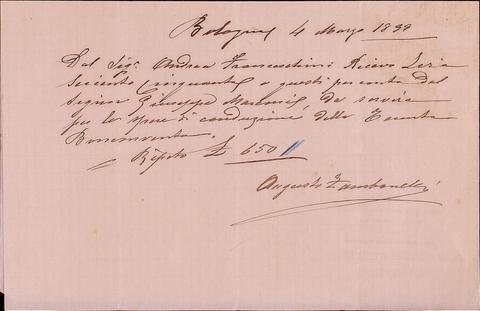 Bologna 4 Marzo 1899
Dal Sigr. Andrea Franceschini Ricevo Lire
Seicento Cinquanta e questi per conto Del
Signor Giuseppe Marconi, da servire
per le spese di conduzione della Tenuta
Bonconvento.
Ripeto £ 650 //
Augusto Zambonelli